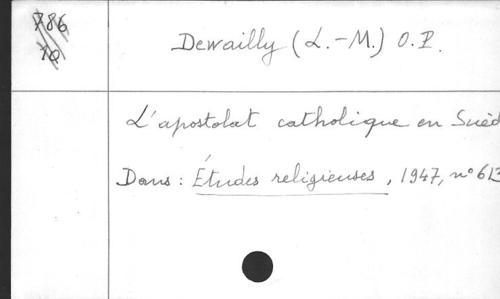 786
10
Dewailly (L.-M.) O.P.
L'apostolat catholique en Suèd
Dans : Études religieuses, 1947, n° 613